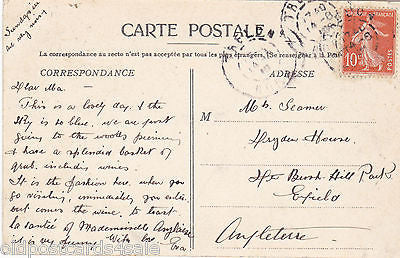 Sunday's
as very
CARTE POSTALE
La correspondance au recto n'est pas acceptée par tous les pays étrangers. (Se renseigner à la Poste)
CORRESPONDANCE
ADRESSE
Dear Ma.
This is a lovely day, & the
sky is so blue. We are just
going to the woods
& have a splendid basket of
grub. including wines.
It is the fashion here. when you
go visiting, immediately you enter
out comes the wine. to toast
la santée of Mademoiselle Anglaise
it is very funny. With love
Eva
M
Seamer
Dryden House.
Bush Hill Park
Enfield
Angleterre
10
POSTES
oldpostcards4sale